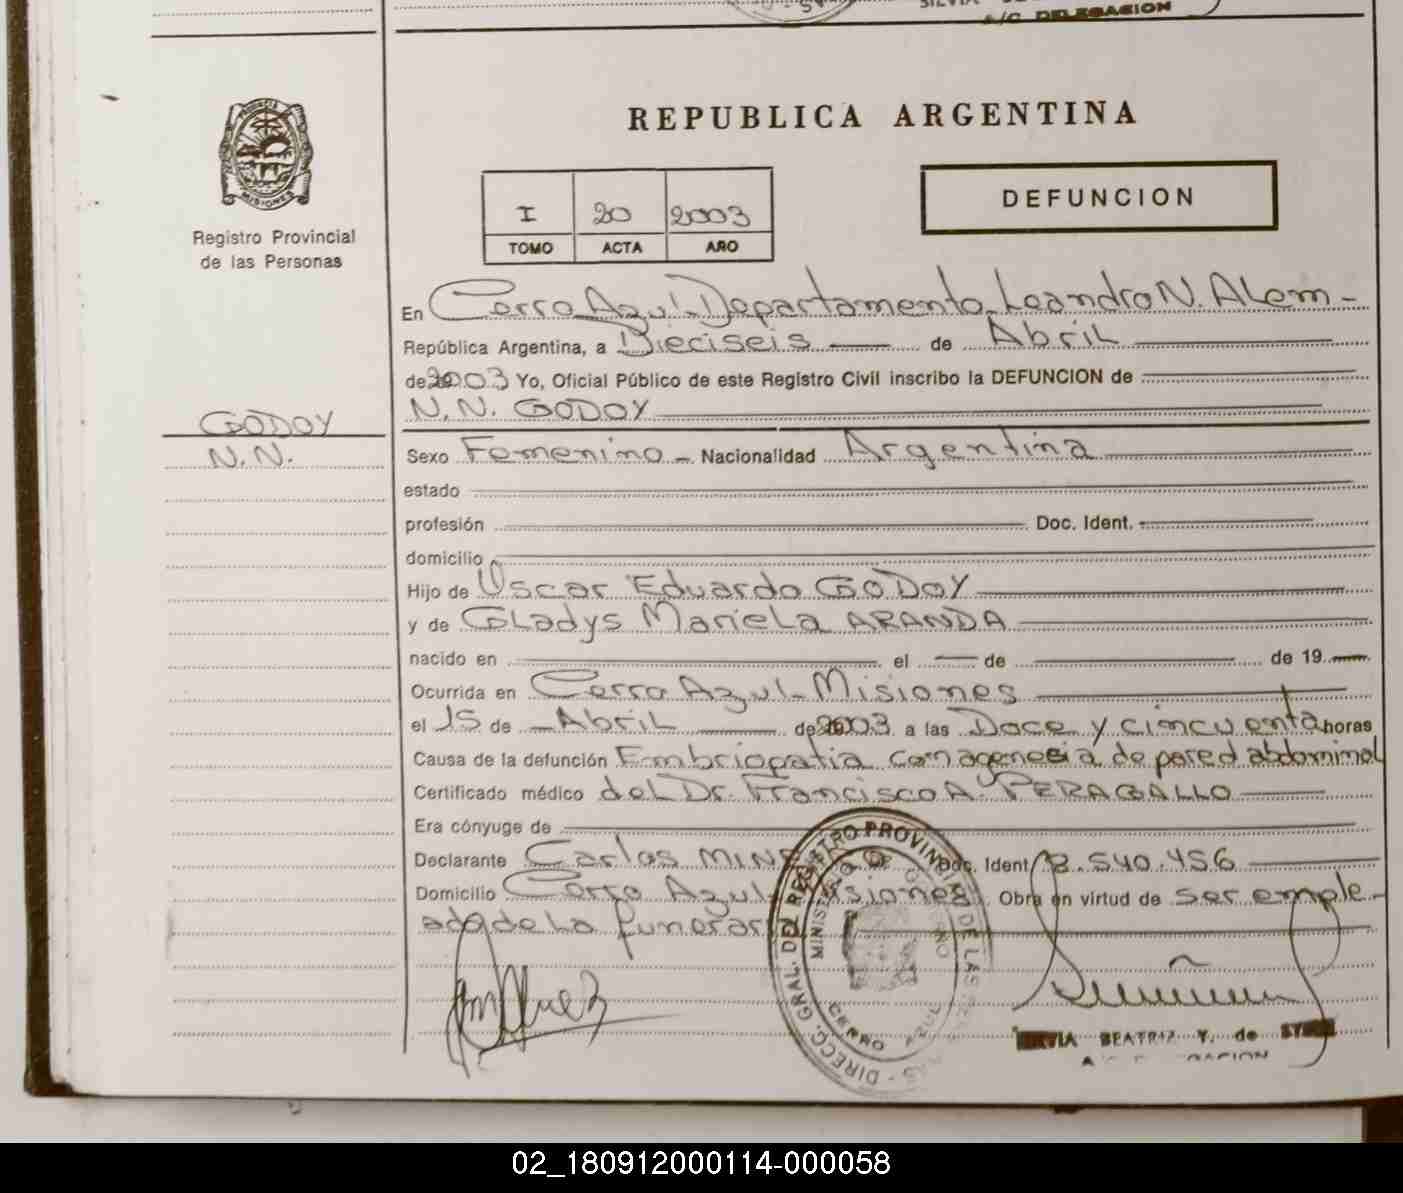 A/C DELEGACION
PROVINCIA DE
MISIONES
Registro Provincial
de las Personas
REPUBLICA ARGENTINA
I 20 2003
TOMO ACTA AÑO
DEFUNCION
En Cerro Azul-Departamento Leandro N. ALem-
República Argentina, a Dieciseis de Abril
de 2003 Yo, Oficial Público de este Registro Civil inscribo la DEFUNCION de
N.N. GODOY
GODOY
N.N.
Sexo Femenino - Nacionalidad Argentina
estado
profesión Doc. Ident.
domicilio
Hijo de Oscar Eduardo GODOY
y de GLadys MarieLa ARANDA
nacido en el de de 19
Ocurrida en Cerro Azul-Misiones
el 15 de Abril de 2003 a las Doce y cincuenta horas
Causa de la defunción Embriopatia de pared abdominal
Certificado médico deL Dr. Francisco A. PERAGALLO
Era cónyuge de
Declarante Carlos Doc. Ident 540.456
Domicilio Cerro Azul- Misiones Obra en virtud de ser emple-
ado de La funeraria
DIRECC. GRAL. DEL REGISTRO PROVINC DE LAS
MINISTERIO DE GOBIERNO
CERRO AZUL
BEATRIZ Y. de